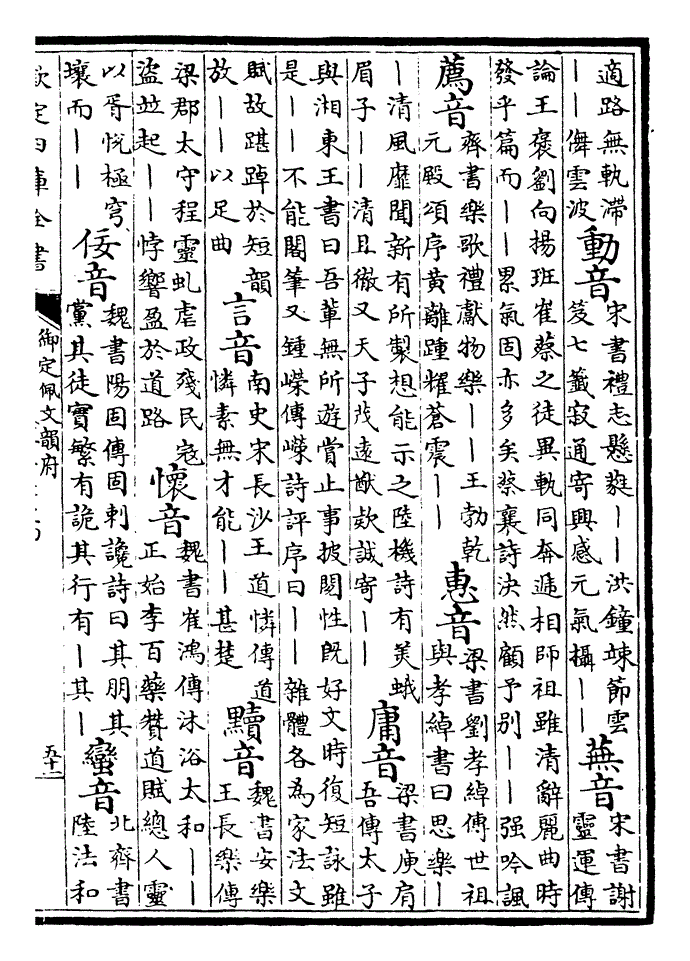 適路無軌滯
——儛雲波
動音
宋書禮志懸鼗——洪鐘竦節雲
笈七籤寂通寄興感元氣攝——
蕪音
宋書謝
靈運傳
論王褒劉向揚班崔蔡之徒異軌同奔遞相師祖雖清辭麗曲時
發乎篇而——累氣固亦多矣蔡襄詩決然顧予別——强吟諷
薦音
齊書樂歌禮獻物樂——王勃乾
元殿頌序黃離踵耀蒼震——
惠音
梁書劉孝綽傳世祖
與孝綽書曰思樂—
—清風靡聞新有所製想能示之陸機詩有美蛾
眉子——清且徽又天子茂遠猷款誠寄——
庸音
梁書庾肩
吾傳太子
與湘東王書曰吾輩無所遊賞止事披閱性旣好文時復短詠雖
是——不能閣筆又鍾嶸傳嶸詩評序曰——雜體各為家法文
賦故踸踔於短韻
放——以足曲
言音
南史宋長沙王道憐傳道
憐素無才能——甚楚
黷音
魏書安樂
王長樂傳
梁郡太守程靈虬虐政殘民寇
盜並起——悖響盈於道路
懷音
魏書崔鴻傳沐浴太和——
正始李百藥贊道賦總人靈
以胥悅極穹
壤而——
佞音
魏書陽固傳固刺讒詩曰其朋其
黨其徒實繁有詭其行有—其—
蠻音
北齊書
陸法和
欽定四庫全書
御定佩文韻府